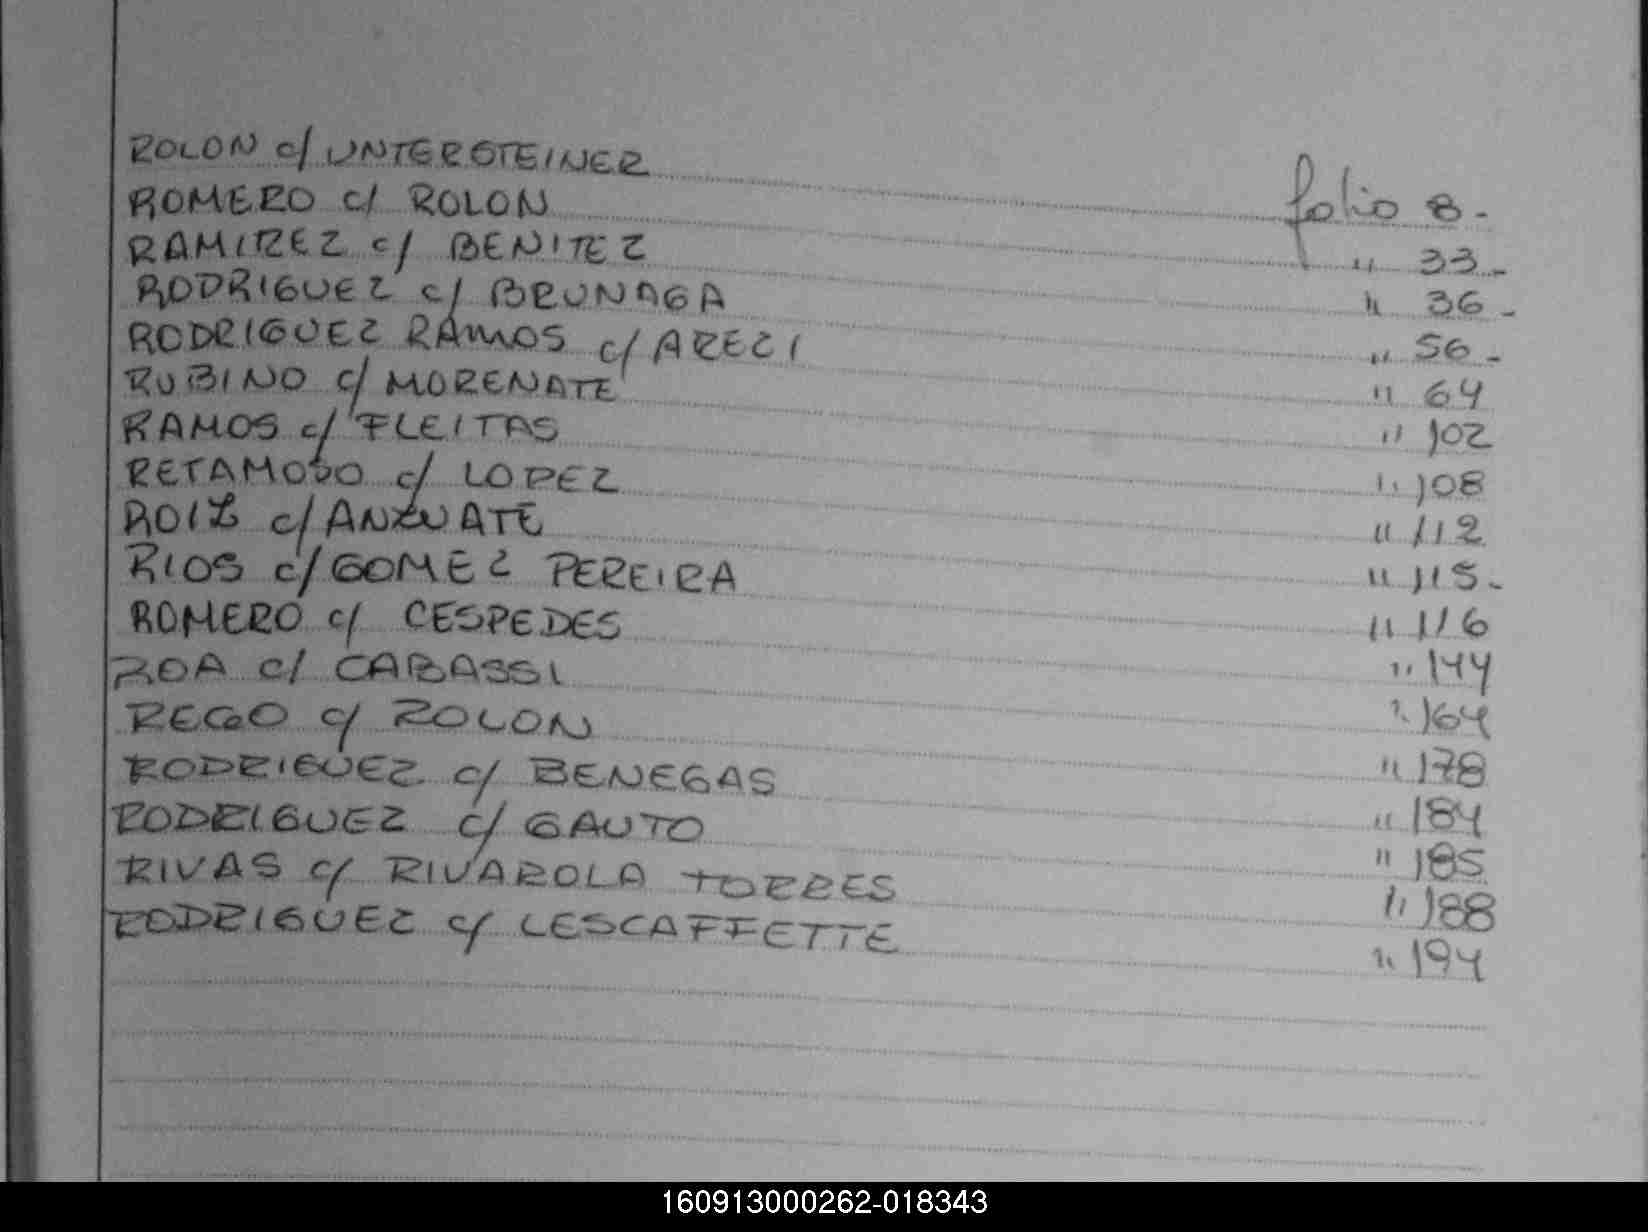 ROLON c/ UNTERSTEINER folio 8.-
ROMERO c/ ROLON " 33.-
RAMIREZ c/ BENITEZ " 36.-
RODRIGUEZ c/ BRUNAGA " 56.-
RODRIGUEZ RAMOS c/ ARECI " 64
RUBINO c/ MORENATE " 102
RAMOS c/ FLEITAS " 108
RETAMOSO c/ LOPEZ " 112
ROIZ c/ ANZUATE " 115.-
RIOS c/ GOMEZ PEREIRA " 116
ROMERO c/ CESPEDES " 144
ROA c/ CABASSI " 164
REGO c/ ROLON " 178
RODRIGUEZ c/ BENEGAS " 184
RODRIGUEZ c/ GAUTO " 185
RIVAS c/ RIVAROLA TORRES " 188
RODRIGUEZ c/ LESCAFFETTE " 194
160913000262-018343